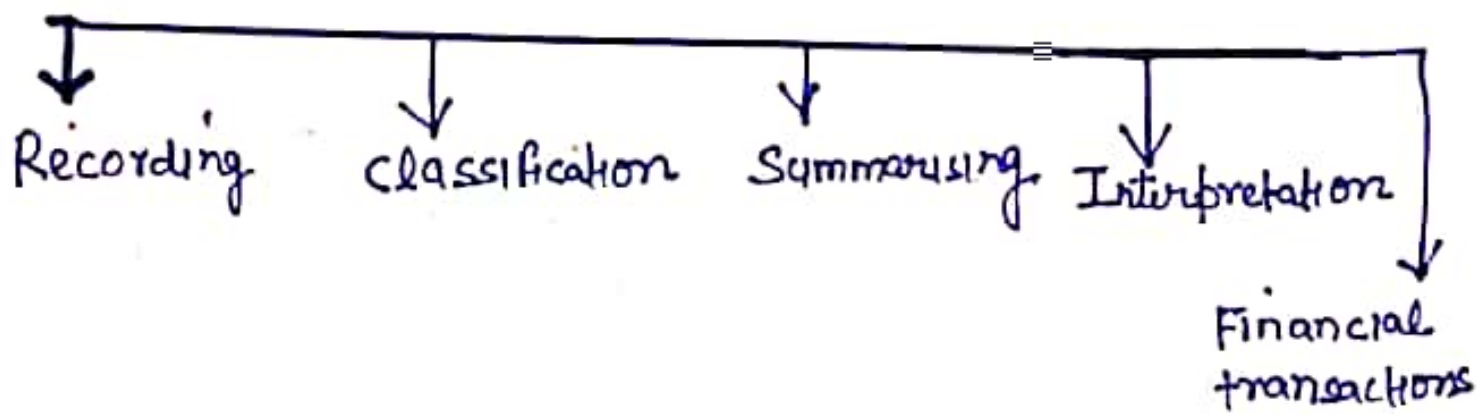 Recording classification Summarising Interpretation
Financial
transactions